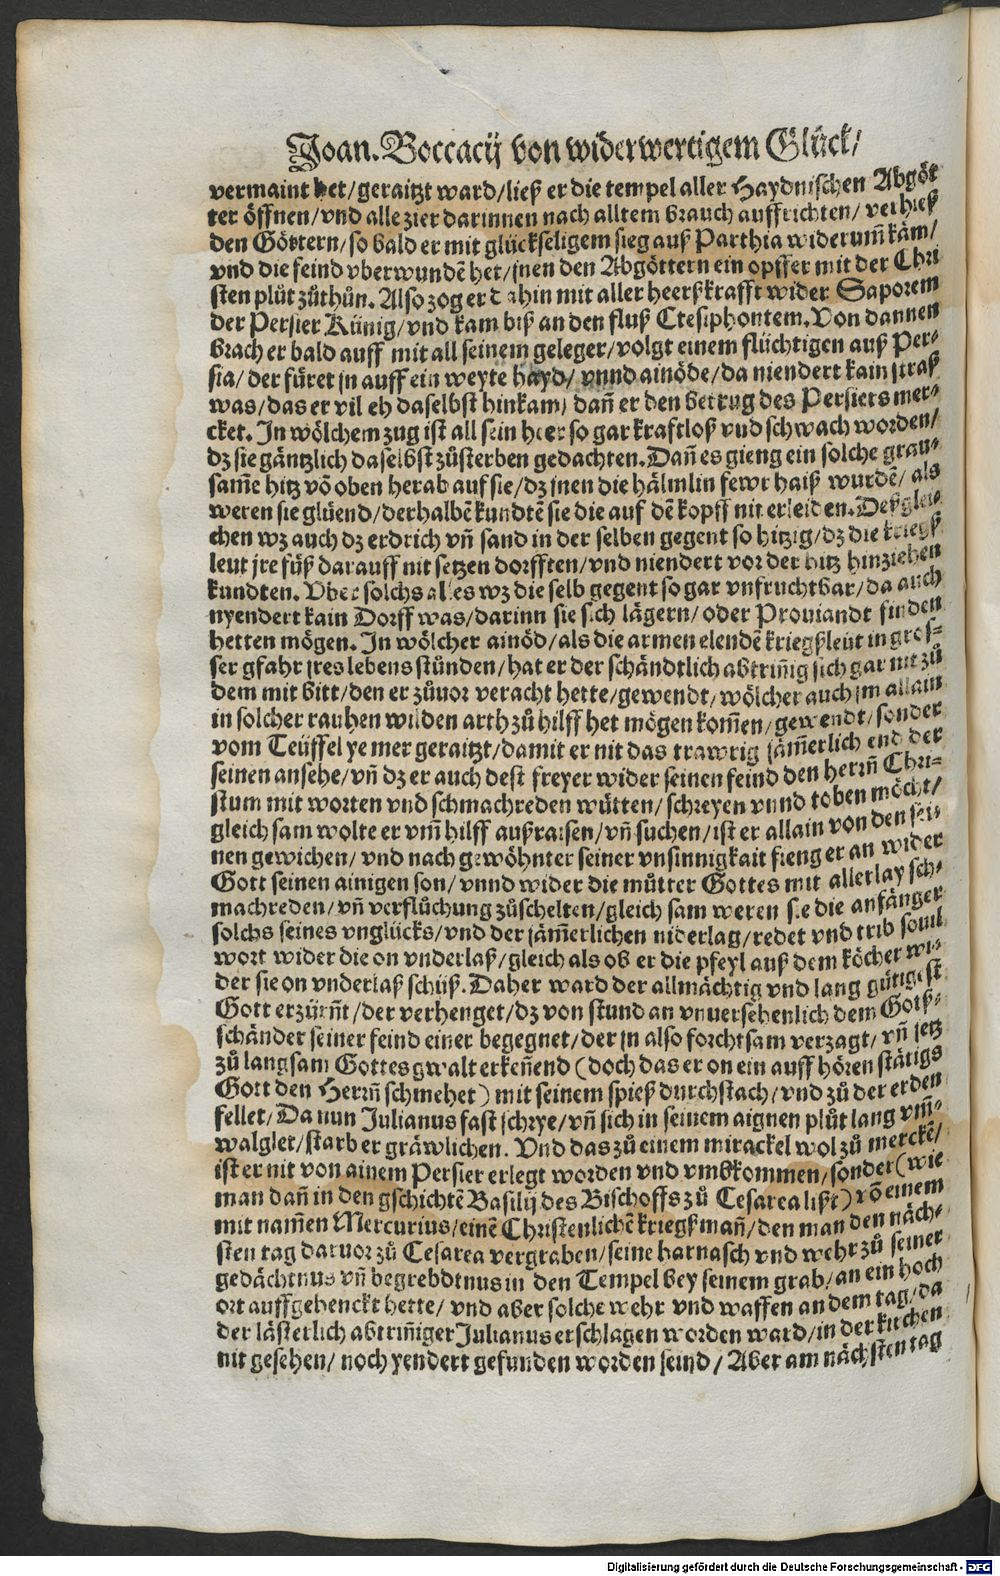 Joan. Boccacij von widerwertigem Glück/
vermaint het/geraitzt ward/ließ er die tempel aller Haydnischen Abgöt
ter öffnen/vnd alle zier darinnen nach alltem brauch auffrichten/verhieß
den Göttern/so bald er mit glückseligem sieg auß Parthia widerum̃ käm/
vnd die feind vberwundẽ het/jnen den Abgöttern ein opffer mit der Chri
sten plůt zůthůn. Also zog er dahin mit aller heerßkrafft wider Saporem
der Persier Künig/vnd kam biß an den fluß Ctesiphontem. Von dannen
brach er bald auff mit all seinem geleger/volgt einem flüchtigen auß Per-
sia/der füret jn auff ein weyte hayd/vnnd ainöde/da niendert kain straß
was/das er vil eh daselbst hinkam/dañ er den betrug des Persiers mer-
cket. In wölchem zug ist all sein heer so gar kraftloß vnd schwach worden/
dz sie gäntzlich daselbst zůsterben gedachten. Dañ es gieng ein solche grau-
sam̃e hitz võ oben herab auf sie/dz jnen die hälmlin fewr haiß wurdẽ/als
weren sie glüend/derhalbẽ kundtẽ sie die auf dẽ kopff nit erleiden. Deßglei-
chen wz auch dz erdrich vñ sand in der selben gegent so hitzig/dz die kriegß
leut jre füß darauff nit setzen dorfften/vnd niendert vor der hitz hinziehen
kundten. Vber solchs alles wz die selb gegent so gar vnfruchtbar/da auch
nyendert kain Dorff was/darinn sie sich lägern/oder Prouiandt finden
hetten mögen. In wölcher ainöd/als die armen elendẽ kriegßleüt in gros-
ser gfahr jres lebens stünden/hat er der schändtlich abtrin̄ig sich gar nit zů
dem mit bitt/den er zůuor veracht hette/gewendt/wölcher auch jm allain
in solcher rauhen wilden arth zů hilff het mögen kom̃en/gewendt/sonder
vom Teüffel ye mer geraitzt/damit er nit das trawrig jäm̃erlich end der
seinen ansehe/vñ dz er auch dest freyer wider seinen feind den herrñ Chri-
stum mit worten vnd schmachreden wütten/schreyen vnnd toben möcht/
gleich sam wolte er vm̃ hilff außraisen/vñ suchen/ist er allain von den sei-
nen gewichen/vnd nach gewöhnter seiner vnsinnigkait fieng er an wider
Gott seinen ainigen son/vnnd wider die můtter Gottes mit allerlay sch-
machreden/vñ verflůchung zůschelten/gleich sam weren sie die anfänger
solchs seines vnglücks/vnd der jäm̃erlichen niderlag/redet vnd trib souil
wort wider die on vnderlaß/gleich als ob er die pfeyl auß dem köcher wi-
der sie on vnderlaß schüß. Daher ward der allmächtig vnd lang gütigist
Gott erzürñt/der verhenget/dz von stund an vnuersehenlich dem Gotß-
schänder seiner feind einer begegnet/der jn also forchtsam verzagt/vñ jetz
zů langsam Gottes gwalt erkeñend (doch das er on ein auff hören stätigs
Gott den Herrñ schmehet) mit seinem spieß durchstach/vnd zů der erden
fellet/Da nun Julianus fast schrye/vñ sich in seinem aignen plůt lang vm̃-
walglet/starb er gräwlichen. Vnd das zů einem mirackel wol zů merckẽ/
ist er nit von ainem Persier erlegt worden vnd vmbkommen/sonder (wie
man dañ in den gschichtẽ Basilij des Bischoffs zů Cesarea lißt) võ einem
mit nam̃en Mercurius/einẽ Christenlichẽ kriegßmañ/den man den näch-
sten tag daruor zů Cesarea vergraben/seine harnasch vnd wehr zů seiner
gedächtnus vñ begrebdtnus in den Tempel bey seinem grab/an ein hoch
ort auffgehenckt hette/vnd aber solche wehr vnd waffen an dem tag/da
der lästerlich abtrin̄iger Julianus erschlagen worden ward/in der kirchen
nit gesehen/noch yendert gefunden worden seind/Aber am nächsten tag
Digitalisierung gefördert durch die Deutsche Forschungsgemeinschaft - DFG